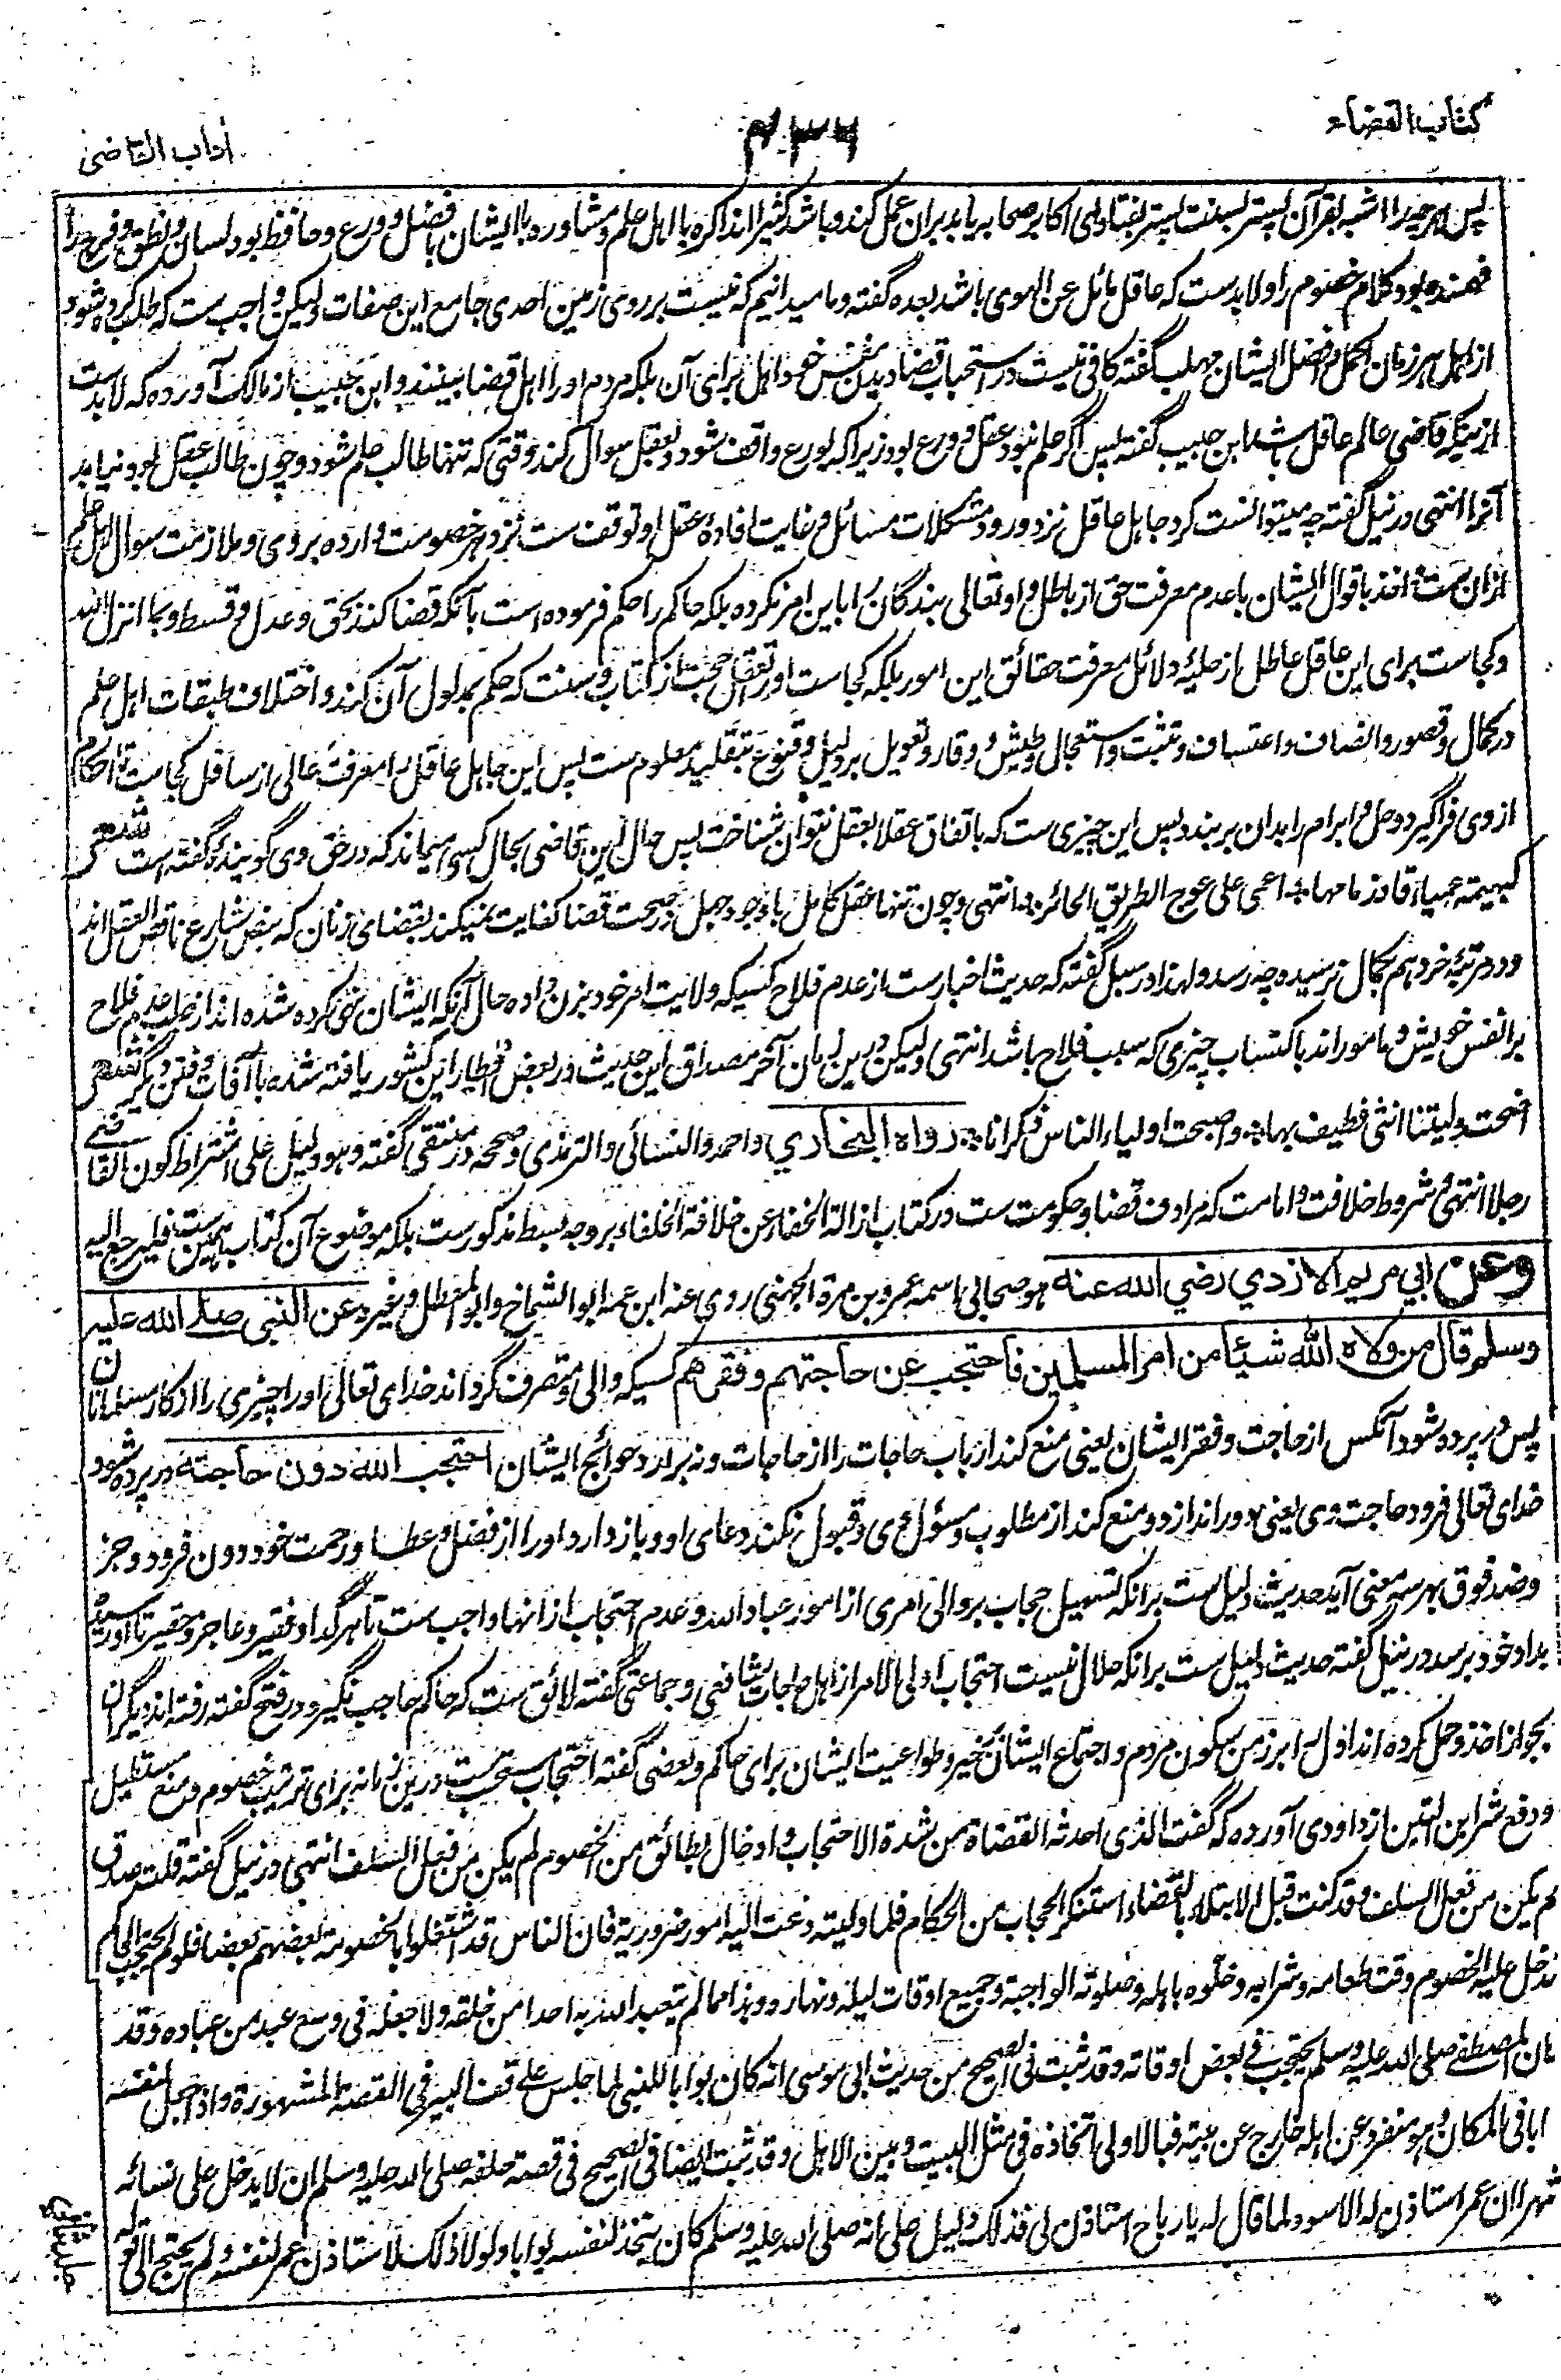 کتاب القضاء
۴۳۶
آداب القاضی
پس هر چیزرا اشبه بقرآن پستر بسنت پستر بفتاوای اکابر صحابه یابد بران عمل کند و باشد کثیر المذاکره با اهل علم و مشاوره با ایشان با فضل و ورع و حافظ بود لسان و نطق و فرج را
فهمنده بود کلام خصوم را و لابدست که عاقل مائل عن الهوی باشد بعده گفته و ما میدانیم که نیست بر روی زمین احدی جامع این صفات ولیکن واجب ست که طلب کرده شود
از اهل هر زمان اکمل و افضل ایشان مهلب گفته کافی نیست در استحباب قضا دیدن نفس خود اهل برای آن بلکه مردم او را اهل قضا بینند و ابن حبیب از مالک آورده که لابدست
از ینکه قاضی عالم عاقل باشد ابن حبیب گفته پس اگر علم نبود عقل و ورع بود زیرا که بورع واقف شود و بعقل سوال کند وقتی که تنها طالب علم شود و چون طالب عقل بود نیابد
آنرا انتهی در نیل گفته چه میتوانست کرد جاهل عاقل نزد ورود مشکلات مسائل و غایت افادهٔ عقل او توقف ست نزد هر خصومت وارده بر وی و ملازمت سوال اهل علم
ازان ست و اخذ باقوال ایشان با عدم معرفت حق از باطل و او تعالی بندگان را باین امر نکرده بلکه حاکم را حکم فرموده است بآنکه قضا کند بحق و عدل و قسط و بما انزل الله
و کجاست برای این عاقل عاطل از حلیهٔ دلائل معرفت حقائق این امور بلکه کجاست او را تعقل حجت از کتاب و سنت که حکم بمدلول آن کند و اختلاف طبقات اهل علم
در کمال و قصور و انصاف و اعتساف و تثبت و استعجال و طیش و وقار و تعویل بر دلیل و قنوع بتقلید معلوم ست پس این جاهل عاقل را معرفت عالی از سافل کجاست تا احکام
از وی فراگیرد و حل و ابرام را بدان بر بندد پس این چیزی ست که باتفاق عقلا بعقل نتوان شناخت پس حال این قاضی بحال کسی میماند که در حق وی گوینده گفته است شعر
کبهیمة عمیاء قاد زمامها ٭ اعمی علی عوج الطریق الحائر ٭ انتهی و چون تنها عقل کامل باوجود جهل در صحت قضا کفایت نمیکند بقضای زنان که بنص شارع ناقص العقل اند
و در مرتبهٔ خرد هم بکمال نرسیده چه رسد و لهذا در سبل گفته که حدیث اخبارست از عدم فلاح کسیکه ولایت امر خود بزن داده حال آنکه ایشان نهی کرده شده اند از جلب عدم فلاح
بر انفس خویش و مامور اند باکتساب چیزی که سبب فلاح باشد انتهی ولیکن درین زمان آخر مصداق این حدیث در بعض اقطار این کشور یافته شده باآفات و فتن دیگر شعر
اضحت ولیتنا انثی نطیف بها ٭ واصبحت اولیاء الناس ذکرانا ٭ رواه البخاري واحمد والنسائی والترمذی وصححه در منتقی گفته وهو دلیل علی اشتراط کون القاضی
رجلا انتهی و شروط خلافت و امامت که مرادف قضا و حکومت ست در کتاب ازالة الخفاء عن خلافة الخلفاء بر وجه بسط مذکورست بلکه موضوع آن کتاب همین ست فلیرجع الیه
وعن ابي مريم الازدي رضي الله عنه هو صحابی اسمه عمرو بن مرة الجهنی روی عنه ابن عمه ابو الشماخ وابو المعطل وغیره عن النبي صلى الله عليه
وسلم قال من ولاه الله شيئا من امر المسلمين فاحتجب عن حاجتهم وفقرهم کسیکه والی و متصرف گرداند خدای تعالی او را چیزی را از کار مسلمانان
پس در پرده شود آنکس از حاجت و فقر ایشان یعنی منع کند ارباب حاجات را از حاجات و نه برآرد حوائج ایشان احتجب الله دون حاجته در پرده شود
خدای تعالی فرود حاجت وی یعنی دور اندازد و منع کند از مطلوب و مسئول وی و قبول نکند دعای او و باز دارد او را از فضل و عطا و رحمت خود و دون فرود و جز
و ضد فوق بهر سه معنی آید حدیث دلیل ست برانکه تسهیل حجاب بر والی امری از امور عباد الله و عدم احتجاب از انها واجب ست تا هر گدا و فقیر و عاجز و حقیر تا او رسیده
بداد خود برسد در نیل گفته حدیث دلیل ست برانکه حلال نیست احتجاب اولی الامر از اهل حاجات شافعی و جماعتی گفته لائق ست که حاکم حاجب نگیرد و در فتح گفته رفته اند دیگران
بجواز اخذ و حمل کرده اند اول را بر زمن سکون مردم و اجتماع ایشان بخیر و طواعیت ایشان برای حاکم و بعضی گفته احتجاب مستحب ست درین زمانه برای ترتیب خصوم و منع مستطیل
و دفع شر ابن التین از داودی آورده که گفت الذی احدثه القضاة من شدة الاحتجاب و ادخال بطائق من الخصوم لم یکن من فعل السلف انتهی در نیل گفته قلت صدق
لم یکن من فعل السلف وقد کنت قبل الابتلاء بالقضاء استنکر الحجاب من الحکام فلما ولیته دعت الیه امور ضروریة فان الناس قد اشتغلوا بالخصومة لبعضهم بعضا فلو لم یحتجب الحاکم
لدخل علیه الخصوم وقت طعامه وشرابه وخلوه باهله وصلوته الواجبة وجمیع اوقات لیله ونهاره وهذا مما لم یتعبد الله به احدا من خلقه ولا جعله فی وسع عبد من عباده وقد
کان المصطفی صلی الله علیه وسلم یحتجب فی بعض اوقاته وقد ثبت فی الصحیح من حدیث ابی موسی انه کان بوابا للنبی لما جلس علی قف البیر فی القصة المشهورة واذا جعل لنفسه
بوابا فی المکان وهو منفرد عن اهله خارج عن بیته فبالاولی اتخاذه فی مثل البیت وبین الاهل وقد ثبت ایضا فی الصحیح فی قصة حلفه صلی الله علیه وسلم ان لا یدخل علی نسائه
شهرا ان عمر استاذن له الاسود لما قال له یا رباح استاذن لی فذلک دلیل علی انه صلی الله علیه وسلم کان یتخذ لنفسه بوابا ولولا ذلک لاستاذن عمر لنفسه ولم یحتج الی قوله